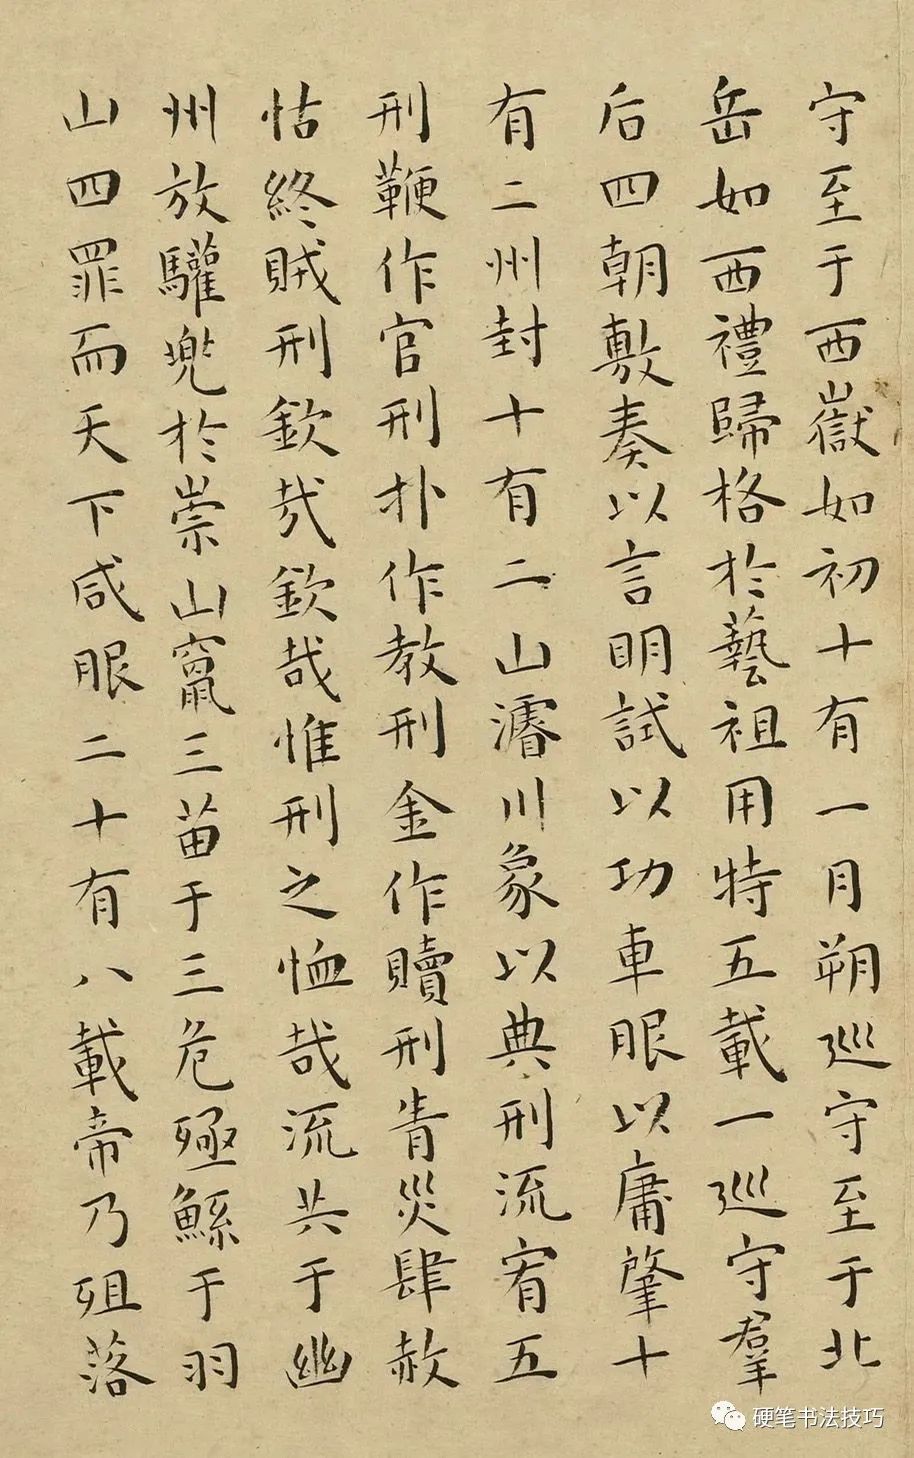 守至于西嶽如初十有一月朔巡守至于北
岳如西禮歸格於藝祖用特五載一巡守羣
后四朝敷奏以言明試以功車服以庸肇十
有二州封十有二山濬川象以典刑流宥五
刑鞭作官刑朴作教刑金作贖刑眚災肆赦
怙終賊刑欽哉欽哉惟刑之恤哉流共于幽
州放驩兜於崇山竄三苗于三危殛鯀于羽
山四罪而天下咸服二十有八載帝乃殂落
硬笔书法技巧